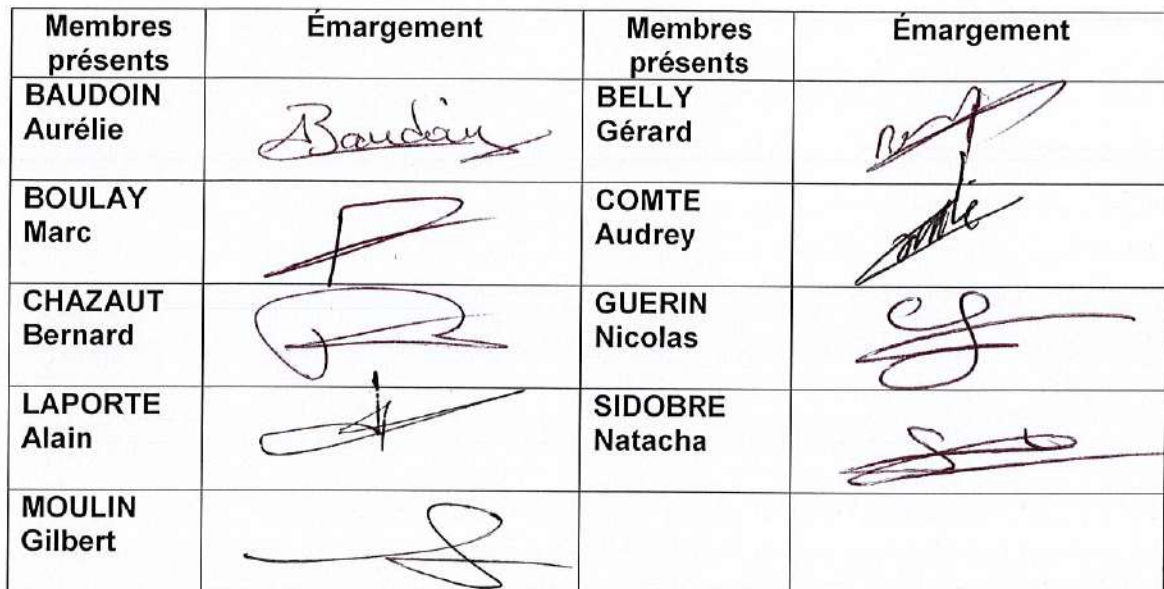 Membres présents
Émargement
Membres présents
Émargement
BAUDOIN
Aurélie
ABaudoin
BELLY
Gérard
BOULAY
Marc
COMTE
Audrey
CHAZAUT
Bernard
GUERIN
Nicolas
LAPORTE
Alain
SIDOBRE
Natacha
MOULIN
Gilbert